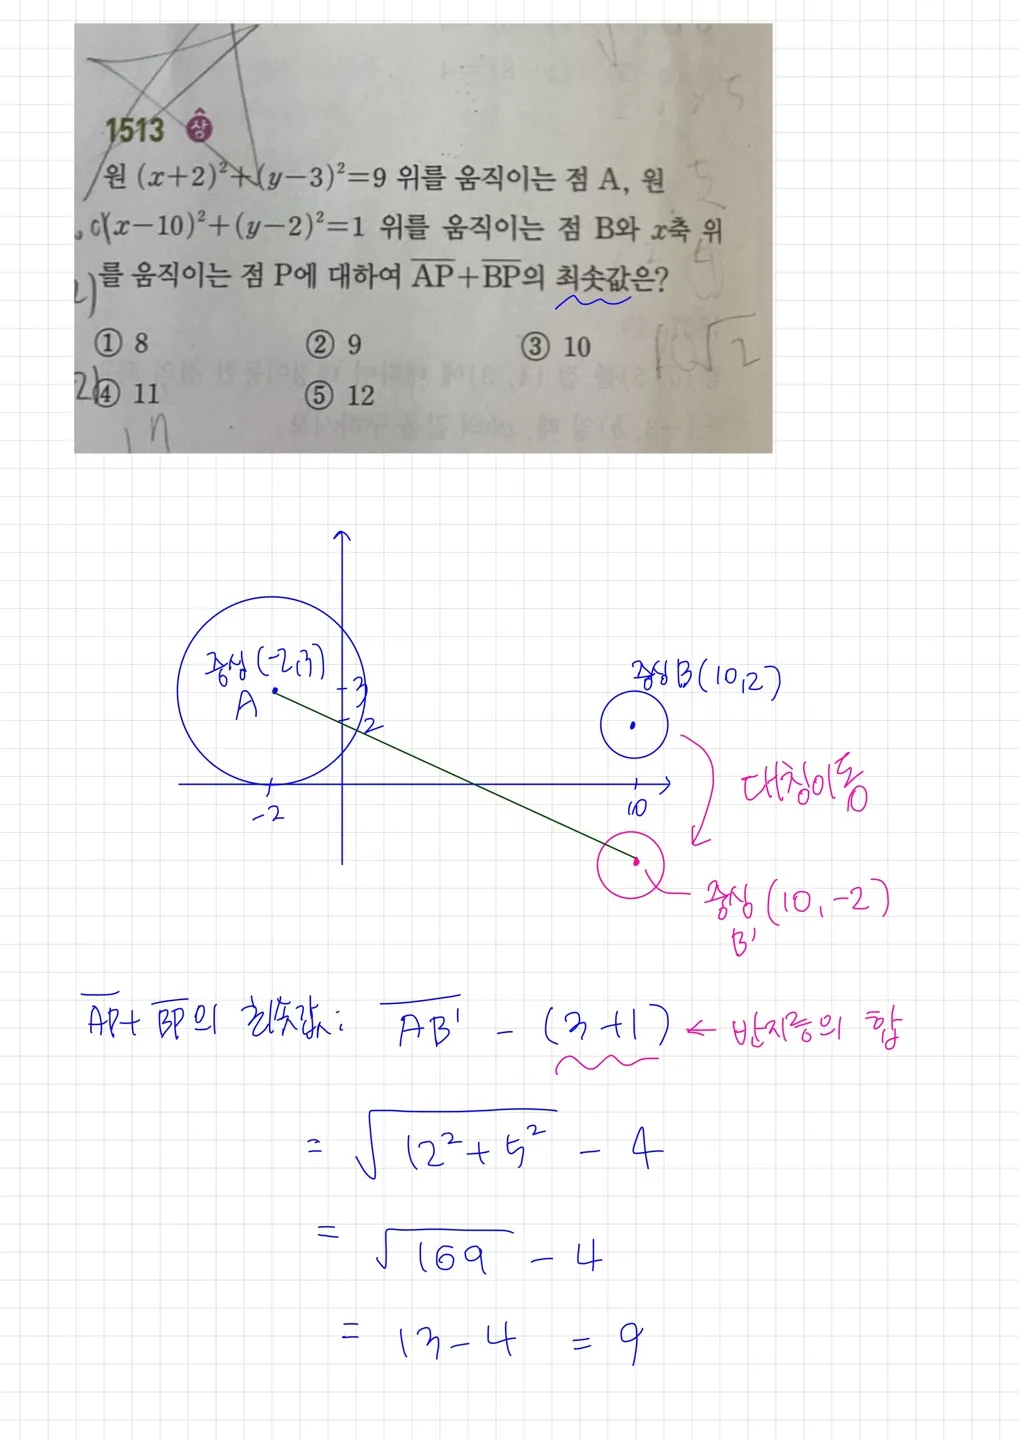 1513 상
원 (x+2)²+(y−3)²=9 위를 움직이는 점 A, 원
(x−10)²+(y−2)²=1 위를 움직이는 점 B와 x축 위
를 움직이는 점 P에 대하여 AP+BP의 최솟값은?
① 8 ② 9 ③ 10
④ 11 ⑤ 12
10√2
중심 (-2,3)
A
3
2
중심 B (10,2)
-2
10
대칭이동
중심 (10,-2)
B'
AP+ BP의 최솟값: AB' - (3+1) ← 반지름의 합
= √12²+5² - 4
= √169 - 4
= 13-4 = 9